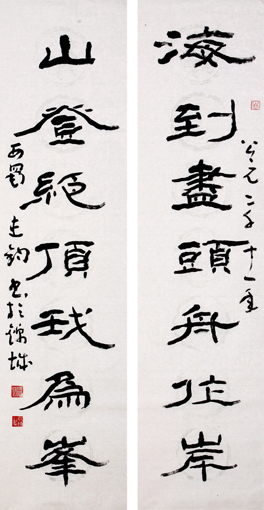 海到盡頭舟作岸
公元二千十一年
山登絕頂我爲峯
西蜀 鈞書於錦城